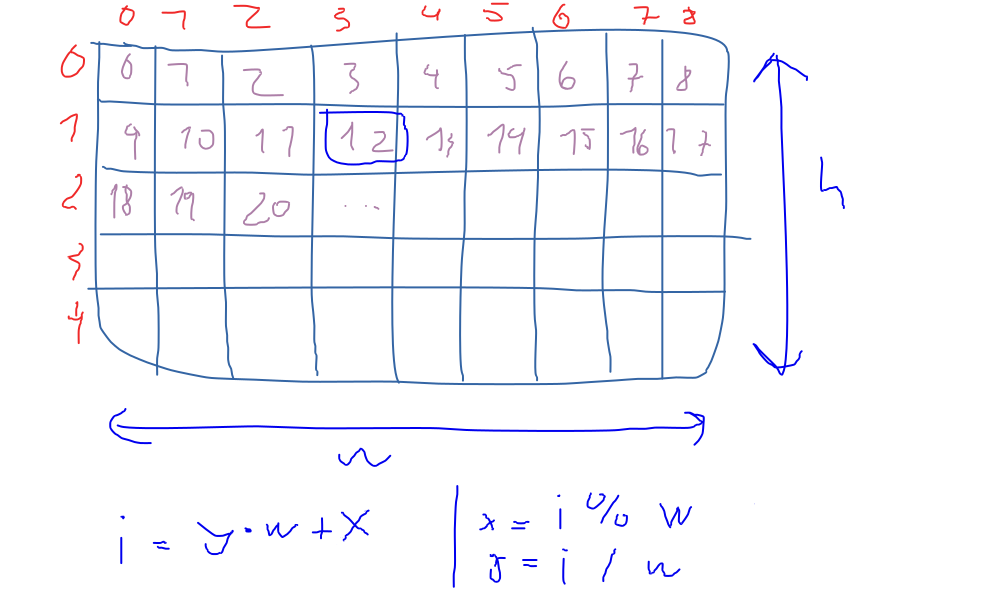 0 1 2 3 4 5 6 7 8
0 0 1 2 3 4 5 6 7 8
1 9 10 11 12 13 14 15 16 17
2 18 19 20 ...
3
4
h
w
i = y·w+x
x = i % w
y = i / w